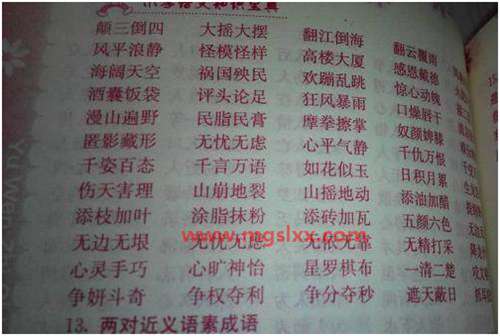 小学语文知识宝典
颠三倒四 大摇大摆 翻江倒海 翻云覆雨
风平浪静 怪模怪样 高楼大厦 感恩戴德
海阔天空 祸国殃民 欢蹦乱跳 惊心动魄
酒囊饭袋 评头论足 狂风暴雨 口燥唇干
漫山遍野 民脂民膏 摩拳擦掌 奴颜婢膝
匿影藏形 无忧无虑 心平气静 千仇万恨
千姿百态 千言万语 如花似玉 日积月累
伤天害理 山崩地裂 山摇地动 添油加醋
添枝加叶 涂脂抹粉 添砖加瓦 五颜六色
www.mgslxx.com
无边无垠 无忧无虑 无依无靠 无精打采
心灵手巧 心旷神怡 星罗棋布 一清二楚
争妍斗奇 争权夺利 争分夺秒 遮天蔽日
13. 两对近义语素成语